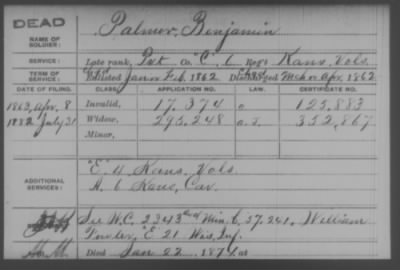 DEAD
Palmer, Benjamin
NAME OF
SOLDIER:
SERVICE: Late rank, Pvt Co. "C", 6 Reg't Kans. Vols.
TERM OF
SERVICE: Enlisted Jan or Feb. 1862 Discharged Mch or Apr, 1862
DATE OF FILING. CLASS. APPLICATION NO. LAW. CERTIFICATE NO.
1863, Apr. 8 Invalid, 17,374 125,883
1882 July 31 Widow, 295,248 352,867
Minor,
ADDITIONAL
SERVICES:
"E" 4 Kans. Vols.
A. 6 Kans, Cav.
See W.C. 2343 Min. C. 37.241, William
Fowler, "E" 21 Wis, Inf.
Died Jan 22 1871, at